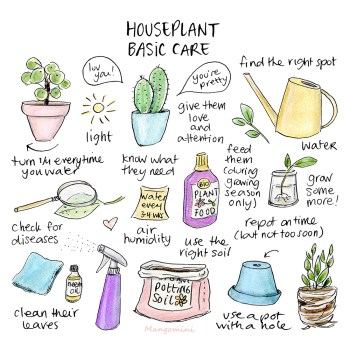 HOUSEPLANT
BASIC CARE
luv
you!
you're
pretty
find the right spot
light
give them
love
and
attention
water
turn 'em everytime
you water
know what
they need
feed
them
(during
growing
season
only)
water
every
3-4 wks
BIO
PLANT
FOOD
grow
some
more!
check for
diseases
air
humidity
use the
right soil
repot on time
(but not too soon)
neem
oil
potting
soil
clean their
leaves
Mangomini
use a pot
with a hole